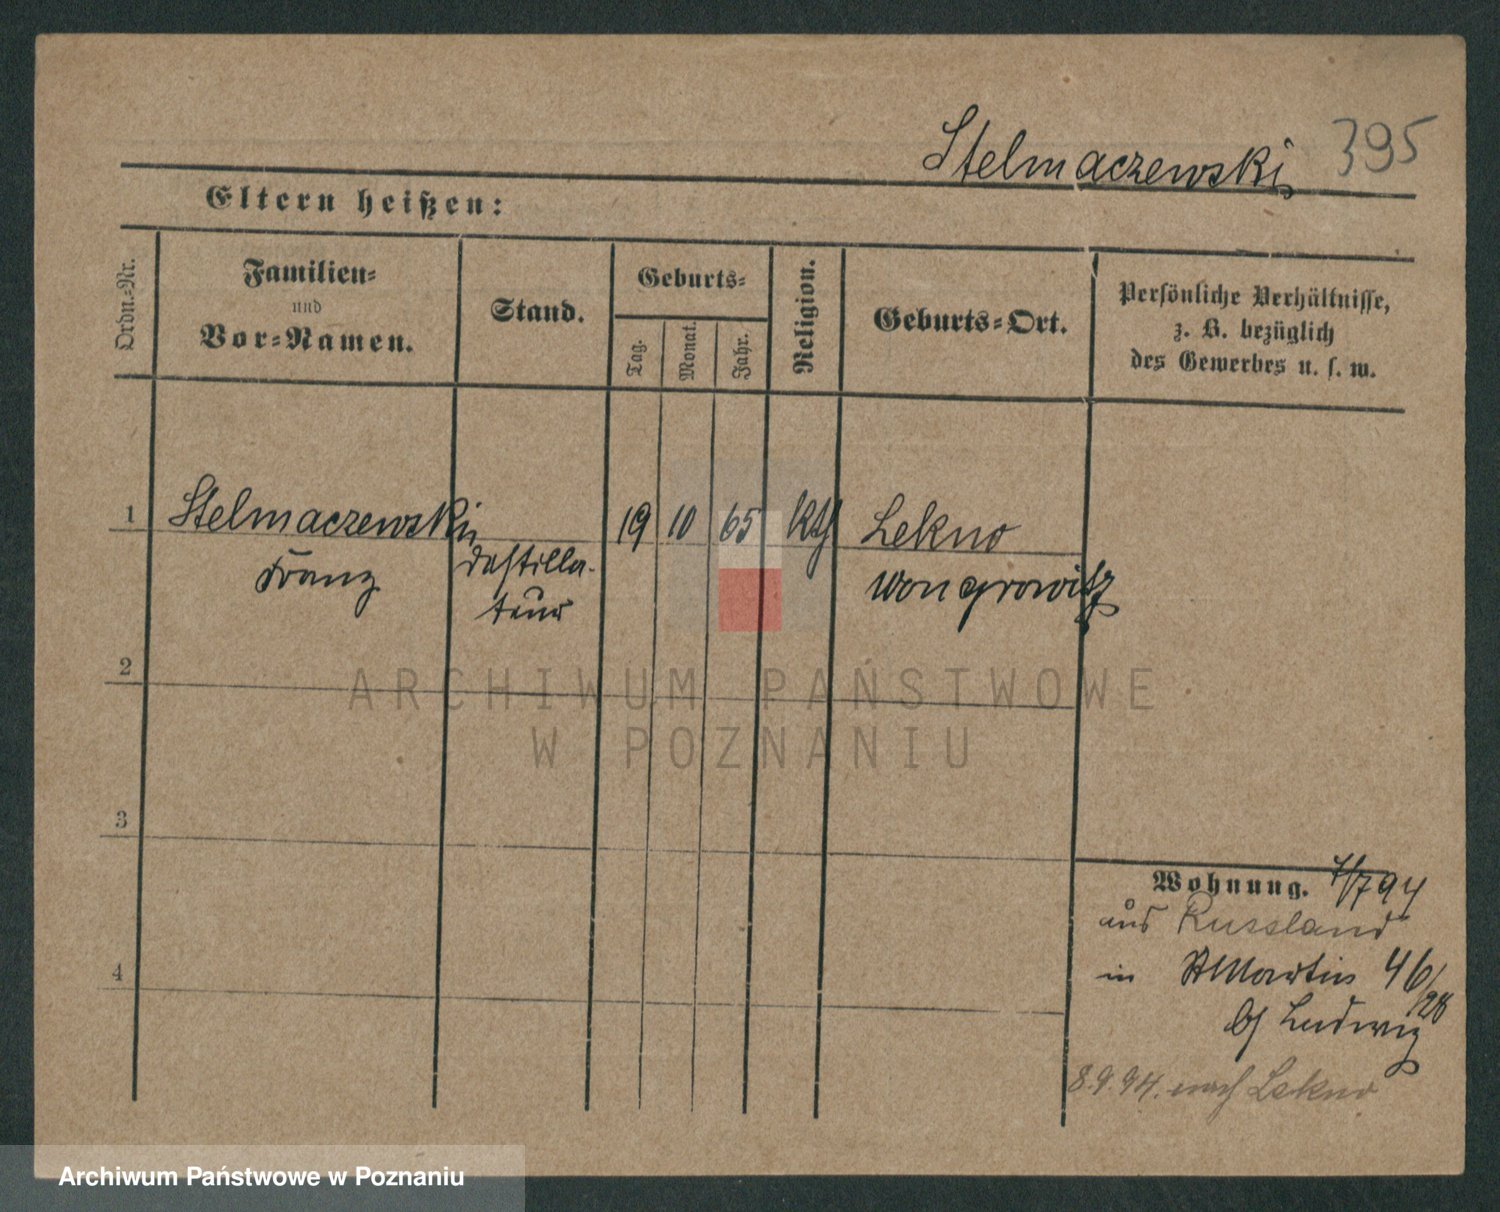 Stelmaczewski 395
Eltern heißen:
Ordn.-Nr.
Familien-
und
Vor-Namen.
Stand.
Geburts-
Tag.
Monat.
Jahr.
Religion.
Geburts-Ort.
Persönliche Verhältnisse,
z. B. bezüglich
des Gewerbes u. s. w.
1 Stelmaczewski 19 10 65 kth Lekno
Franz destilla- Wongrowitz
teur
2
ARCHIWUM PAŃSTWOWE
W POZNANIU
3
Wohnung. 7/7 94
aus Russland
in St Martin 46/28
bf Ludwig
8.9.94. nach Lekno
4
Archiwum Państwowe w Poznaniu